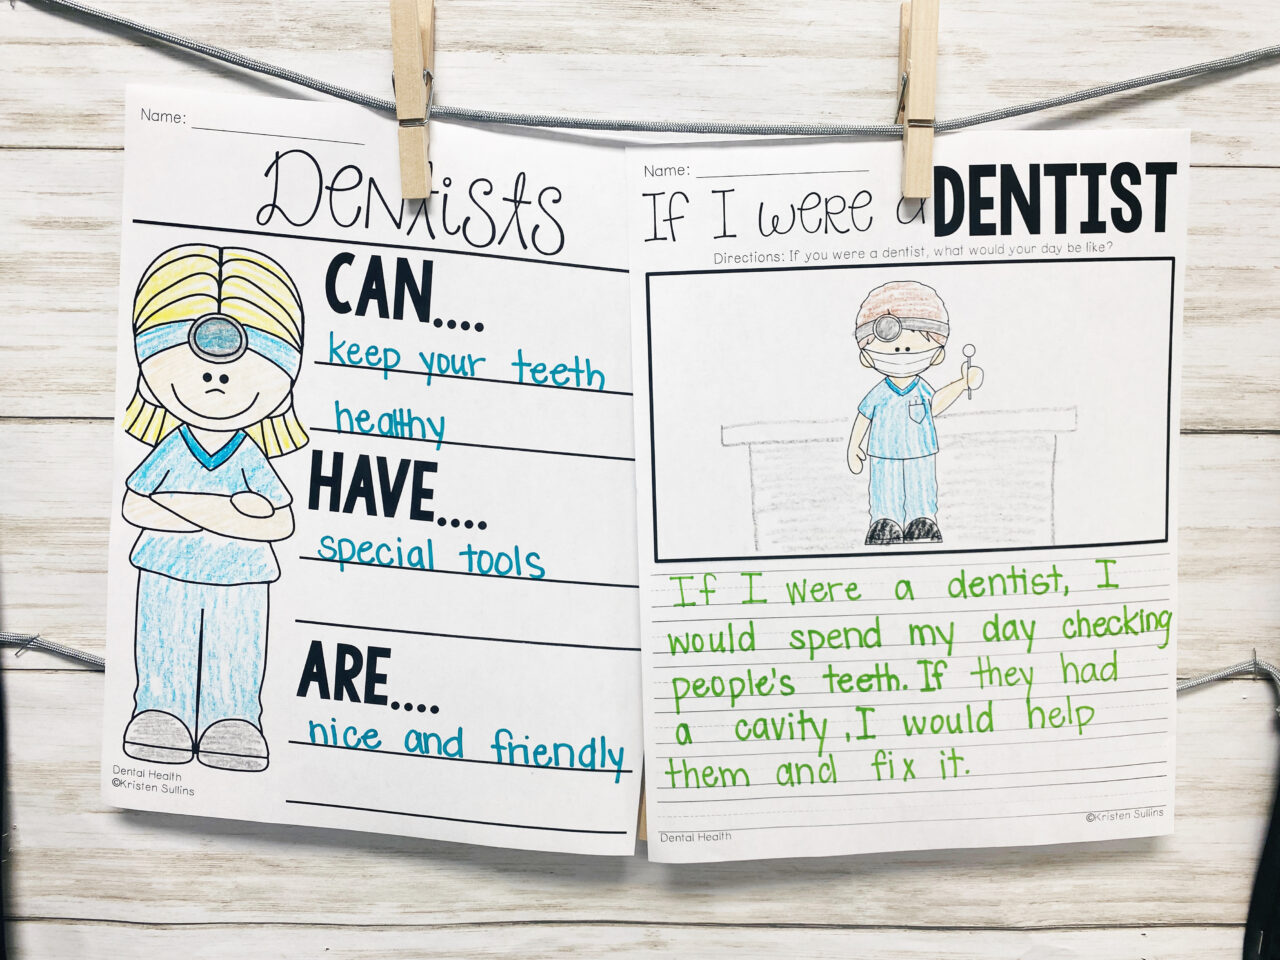 Name:
Dentists
CAN....
keep your teeth
healthy
HAVE....
special tools
ARE....
nice and friendly
Dental Health
©Kristen Sullins
Name:
If I were a DENTIST
Directions: If you were a dentist, what would your day be like?
If I were a dentist, I
would spend my day checking
people's teeth. If they had
a cavity, I would help
them and fix it.
Dental Health
©Kristen Sullins